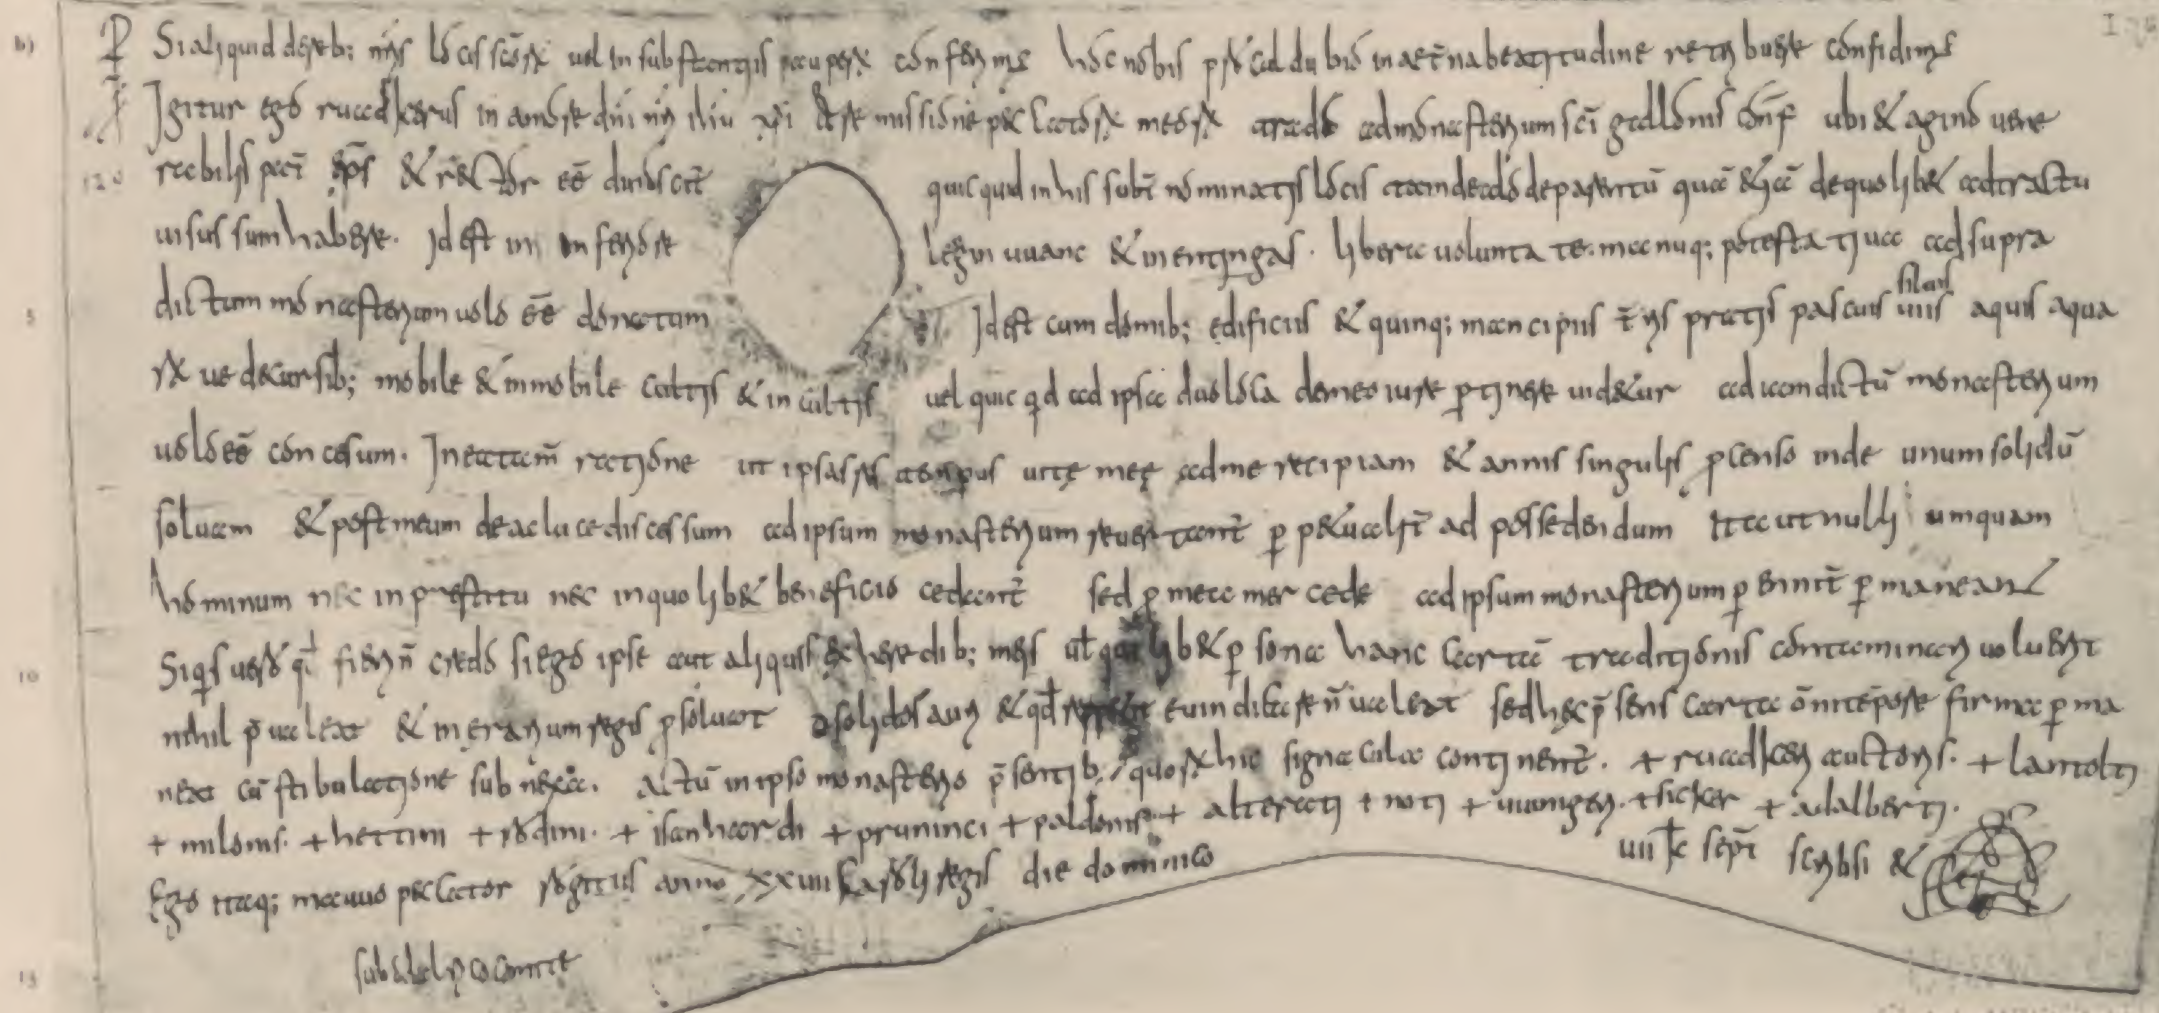 Si aliquid de reb; nr̄is locis scōrꝝ uel in substantiis pauperꝝ conferimꝰ hoc nobis procul dubio in aet̄na beatitudine retribuere confidimꝰ
Igitur ego ruadkerus in amore dn̄i nr̄i ih̄u xp̄i & remissione peccatorꝝ meorꝝ trado ad monasterium scī gallonis conf̄ ubi & agino uene
rabilis pat̄ ep̄s & rector eē dinoscit̄ quicquid in his subt̄ nominatis locis tam de alode parentū quā &iā de quolib& adtractu
uisus sum habere. Id est in inferiore leginuuanc & in entingas. libera uoluntate. manuq; potestatiua ad supra
dictum monasterium uolo eē donatum Id est cum domib; edificiis & quinq; mancipiis t̄ris pratis pascuis siluis uiis aquis aqua
rꝝ ue decursib; mobile & inmobile cultis & in cultis uel quicqd ad ipsa duo loca de meo iure ꝑtinere uid&ur ad iam dictū monasterium
uolo eē concesum. In ea tam̄ ratione ut ipsas res tempus uitę meę ad me recipiam & annis singulis ꝓ censo inde unum solidū
soluam & post meum de ac luce discessum ad ipsum monasterium reuertant̄ ꝑp&ualit̄ ad possedendum Ita ut nulli umquam
hominum nec in prestitu nec in quolib& beneficio cedant̄ sed ꝓ mea mercede ad ipsum monasterium ꝑennit̄ ꝑmaneant
Siqis uero qd fieri n̄ credo si ego ipse aut aliquis ex heredib; meis ul quelib& ꝑsona hanc cartā traditionis contaminari uoluerit
nihil p̄ualeat & in erarium regis ꝑsoluat solidos auri & qd euindicare n̄ ualeat sed hec p̄sens carta om̄i tēpore firma ꝑma
neat cū stibulatione subnexa. Actū in ipso monasterio p̄sentib; quorꝝ hic signacula continent̄. + ruadkeri auctoris. + lantolti
+ milonis. + hettini + rodini. + isanhardi + pruninci + paldonis + alterati + noti + uuingeri. + sicker + adalberti.
Ego itaq; mauuo peccator rogitus anno xxiiii karoli regis die dominico uii k sept̄ scribsi &
sub comite